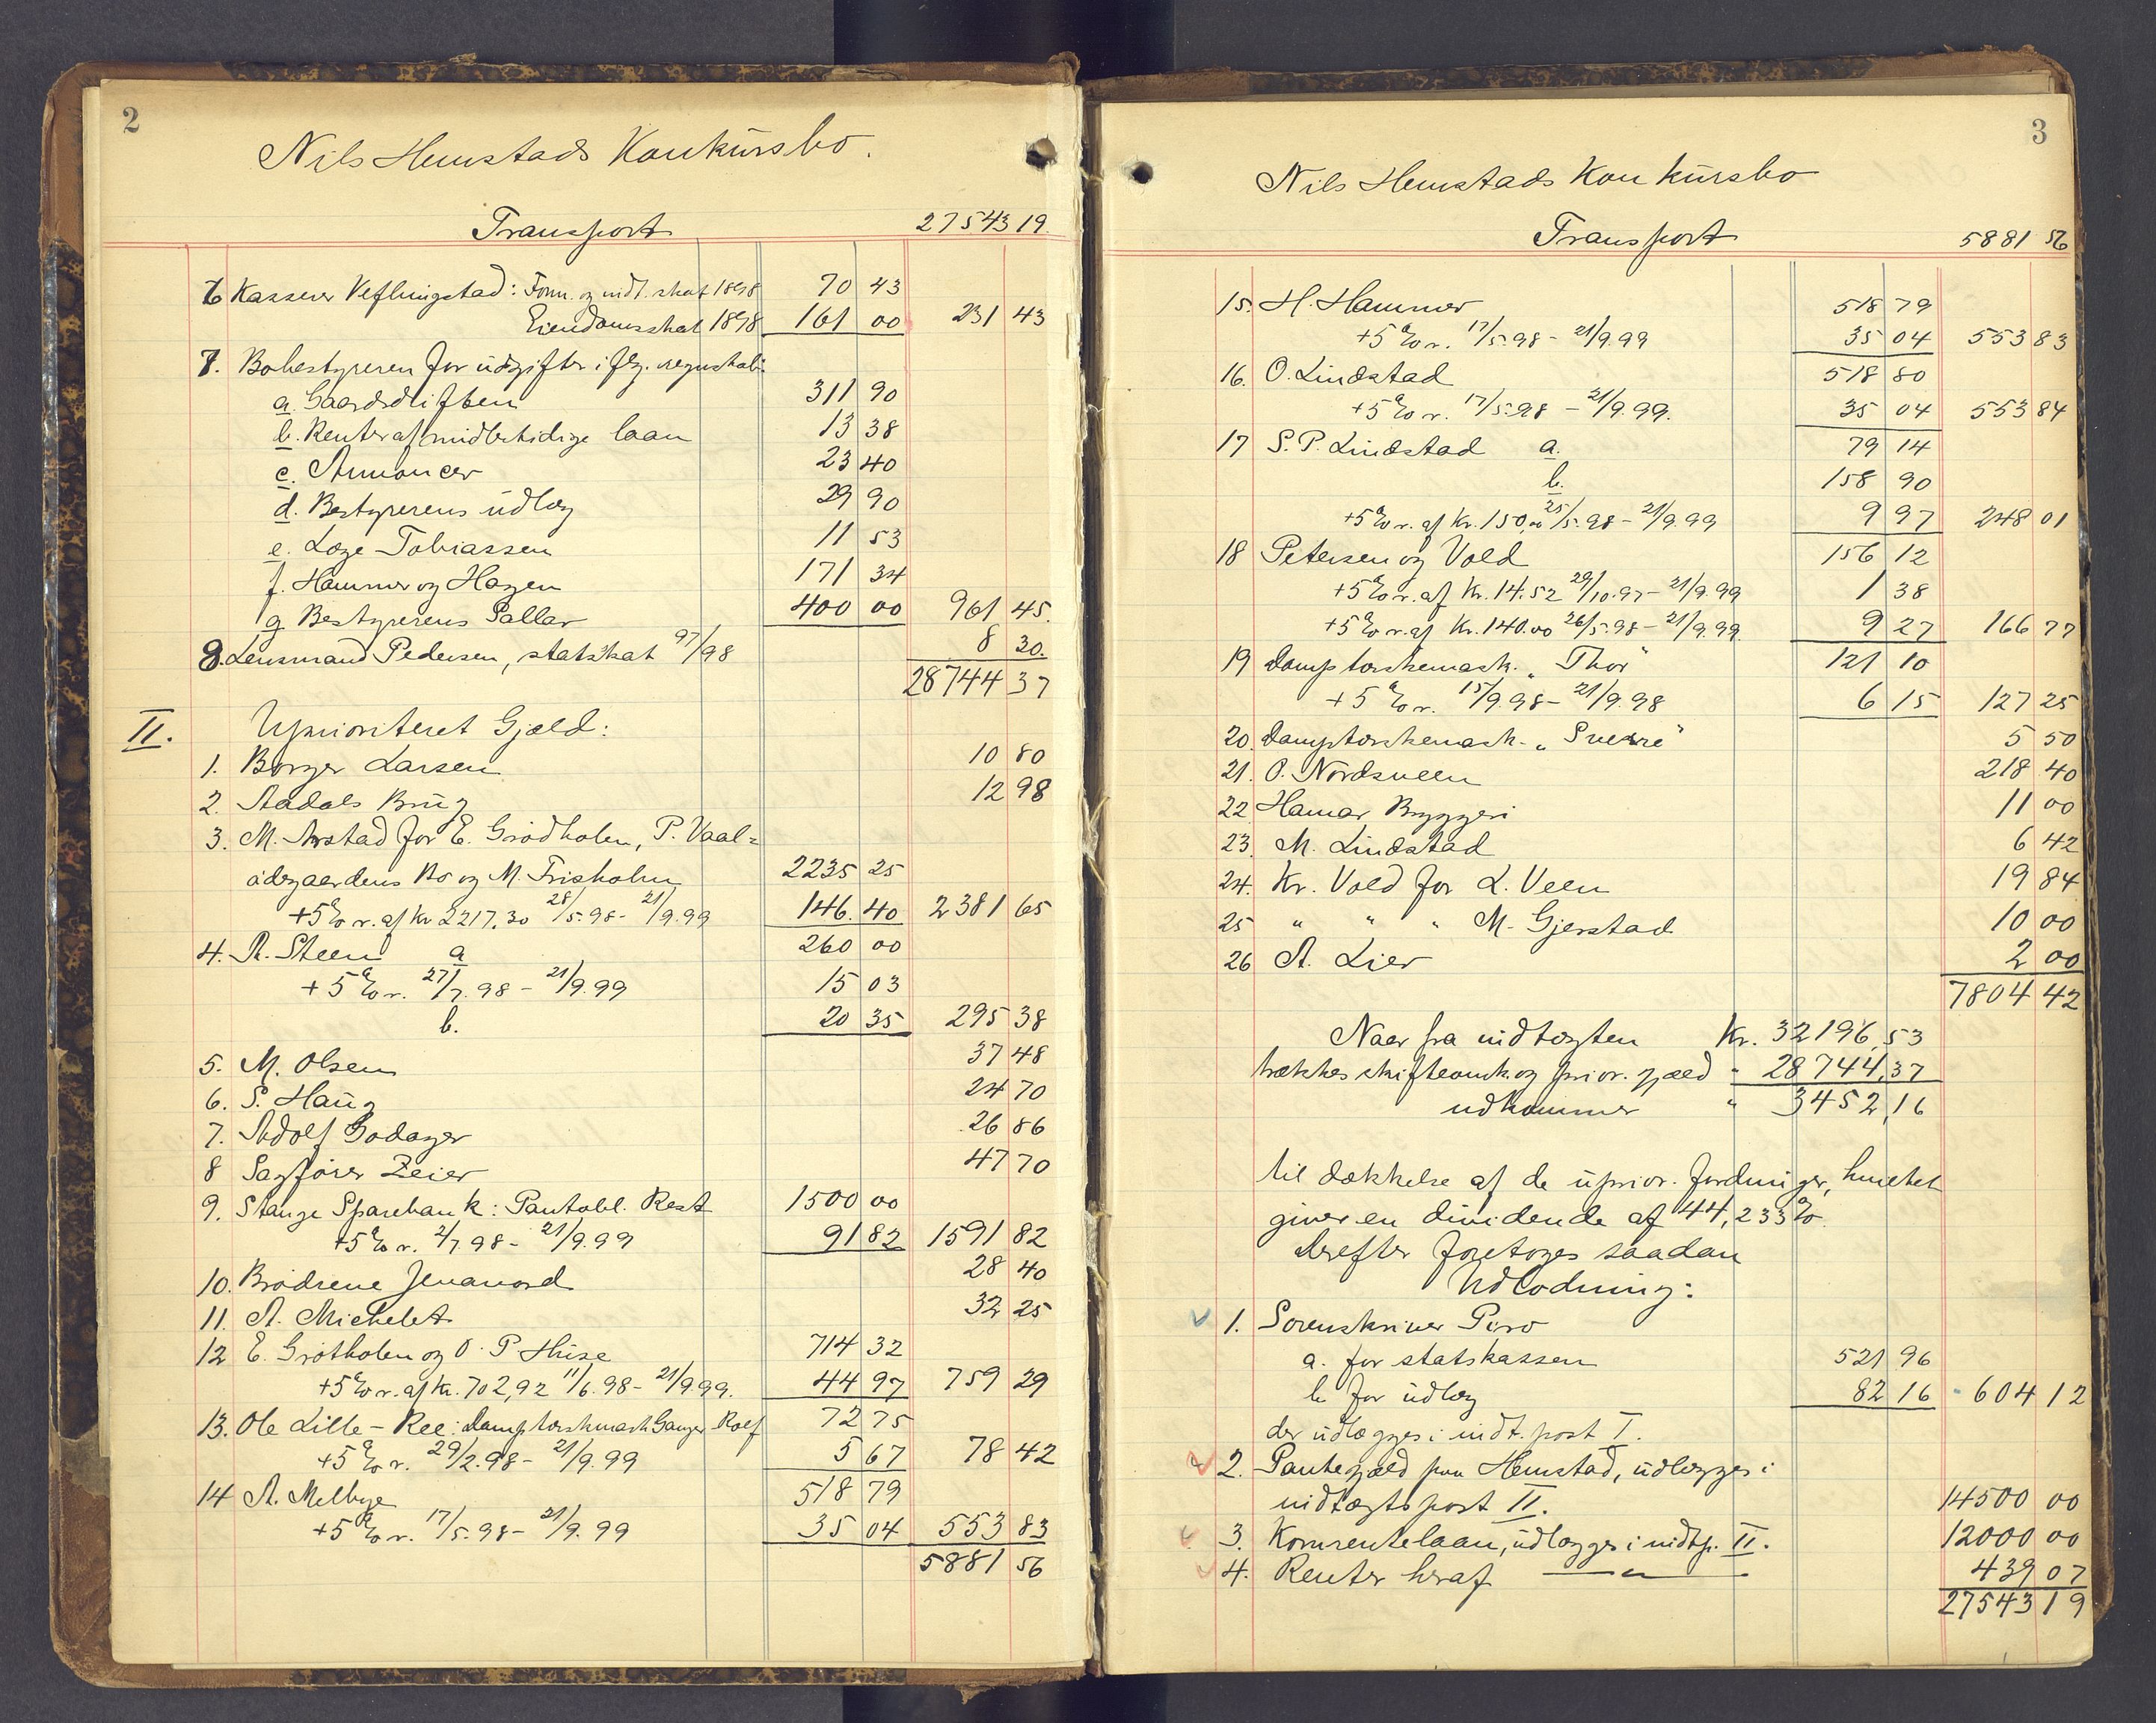 2
Nils Hemstads Konkursbo.
Transport 27543 19
6 Kasserer Veflingstad: Form. og indt. skat 1898 70 43
Eiendomsskat 1898 161 00 231 43
7. Bobestyreren for udgifter iflg. regnskab:
a. Gaardsdriften 311 90
b. Renter af midlertidige laan 13 38
c. Annoncer 23 40
d. Bestyrerens udlæg 29 90
e. Loge Tobiassen 11 53
f. Hammer og Hagen 171 34
g Bestyrerens Sallar 400 00 961 45.
8. Lensmand Pedersen, statskat 97/98 8 30.
28744 37
II. Uprioriteret Gjæld:
1. Borger Larsen 10 80
2. Aadals Brug 12 98
3. M. Arstad for E. Grødholen, P. Vaal=
ødegaardens Bo og M. Frisholm 2235 25
+5% r. af Kr 2217,30 28/5.98 - 21/9.99 146.40 2381 65
4. A. Steen a 260 00
+5% r. 27/7.98 - 21/9.99 15 03
b. 20 35 295 38
5. M. Olsen 37 48
6. S. Haug 24 70
7. Adolf Godager 26 86
8 Sagfører Zeier 47 70
9. Stange Sparebank: Pantobl. Rest 1500 00
+5% r. 2/7 98 - 21/9.99 91 82 1591 82
10. Brødrene Jevanord 28 40
11. A. Michelet 32 25
12 E. Grøtholen og O. P. Huse 714 32
+5% r. af Kr. 702,92 11/6.98 - 21/9 99. 44 97 759 29
13. Ole Lille-Ree: Damptærskmask Ganger Rolf 72 75
+5% r. 29/2.98 - 21/9.99 5 67 78 42
14 A. Melbye 518 79
+5% r. 17/5.98 - 21/9.99 35 04 553 83
5881 56
3
Nils Hemstads Konkursbo
Transport 5881 56
15. H. Hammer 518 79
+5% r. 17/5.98 - 21/9.99 35 04 553 83
16. O. Lindstad 518 80
+5% r. 17/5.98 - 21/9.99. 35 04 553 84
17 S. P. Lindstad a. 79 14
b. 158 90
+5% r. af Kr. 150,00 25/5.98 - 21/9.99 9 97 248 01
18 Petersen og Vold 156 12
+5% r. af Kr. 14.52 29/10.97 - 21/9.99 1 38
+5% r. af Kr. 140.00 26/5.98 - 21/9.99. 9 27 166 77
19 Damptærskemask. "Thor" 121 10
+5% r. 15/9.98 - 21/9.98 6 15 127 25
20. Damptærskemask. "Sverre" 5 50
21. O. Nordsveen 218 40
22 Hamar Bryggeri 11 00
23. M. Lindstad 6 42
24. Kr. Vold for L. Veen 19 84
25 " " " M. Gjerstad 10 00
26 A. Lier 2 00
7804 42
Naar fra indtægten Kr. 32196,53
trækkes skifteomk. og prior. gjæld " 28744,37
udkommer " 3452,16
til dækkelse af de uprior. fordringer, hvilket
giver en dividende af 44,233%.
Derefter foretoges saadan
Udlodning:
1. Sorenskriver Piro
a. for statskassen 521 96
b for udlæg 82 16 604 12
der udlægges i indt. post I.
2. Pantegjæld paa Hemstad, udlægges i
indtægtspost II. 14500 00
3. Kornrentelaan, udlægges i indtp. II. 12000 00
4. Renter heraf — " — 439 07
27543 19